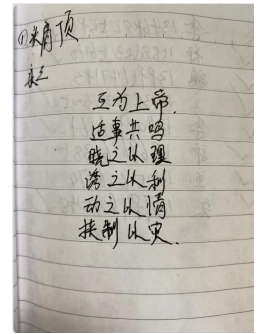 ①米角顶
哀三
互为上帝.
适事共鸣
晓之以理
诱之以利
动之以情
挟制以史.